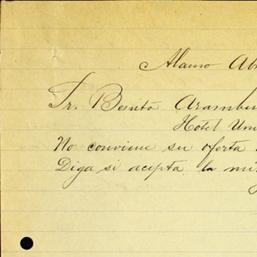 Alamo Ab
Sr. Benito Arambu
Hotel Um
No conviene su oferta
Diga si acepta la mi